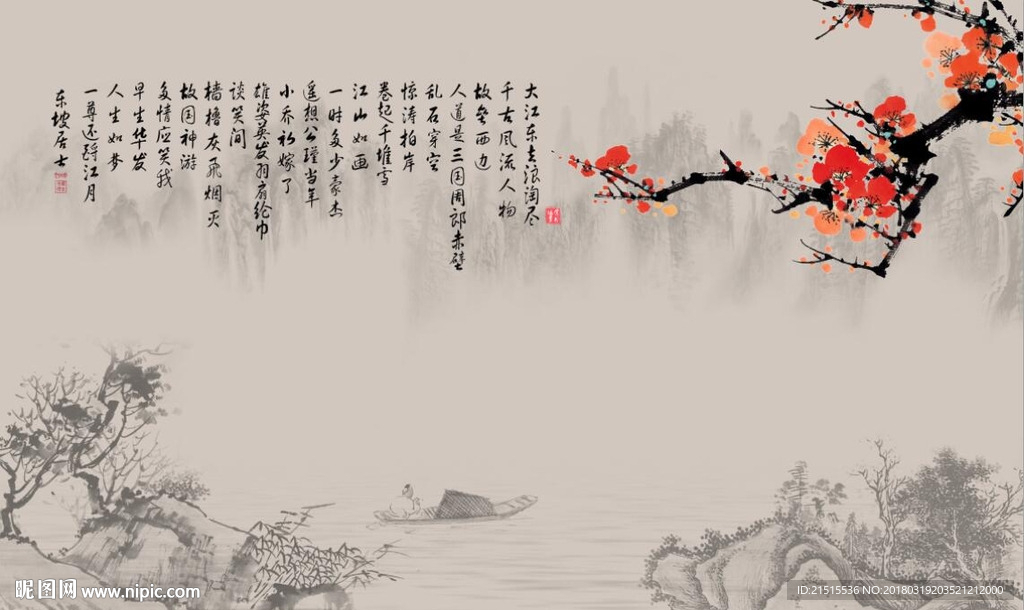 大江东去浪淘尽
千古风流人物
故垒西边
人道是三国周郎赤壁
乱石穿空
惊涛拍岸
卷起千堆雪
江山如画
一时多少豪杰
遥想公瑾当年
小乔初嫁了
雄姿英发羽扇纶巾
谈笑间
樯橹灰飞烟灭
故国神游
多情应笑我
早生华发
人生如梦
一尊还酹江月
东坡居士
昵图网 www.nipic.com
ID:21515536 NO:20180319203521212000